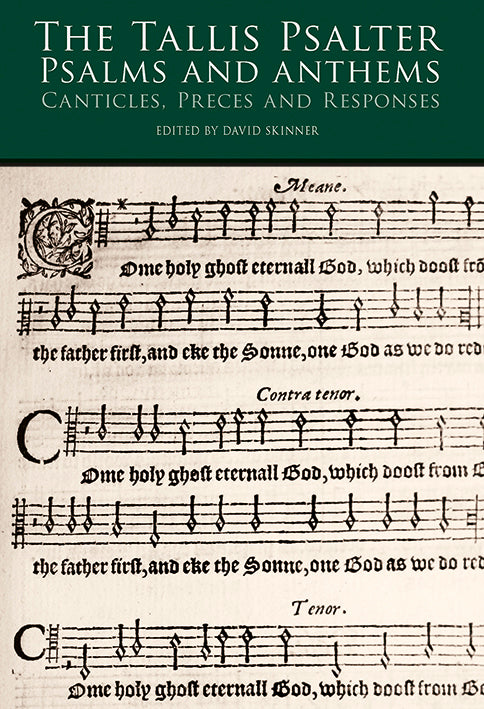 THE TALLIS PSALTER
PSALMS AND ANTHEMS
CANTICLES, PRECES AND RESPONSES
EDITED BY DAVID SKINNER
Meane.
COme holy ghost eternall God, which doost frõ
the father first, and eke the Sonne, one God as we do red
Contra tenor.
COme holy ghost eternall God, which doost from G
the father first, and eke the Sonne, one God as we do red
Tenor.
COme holy ghost eternall God, which doost from Go